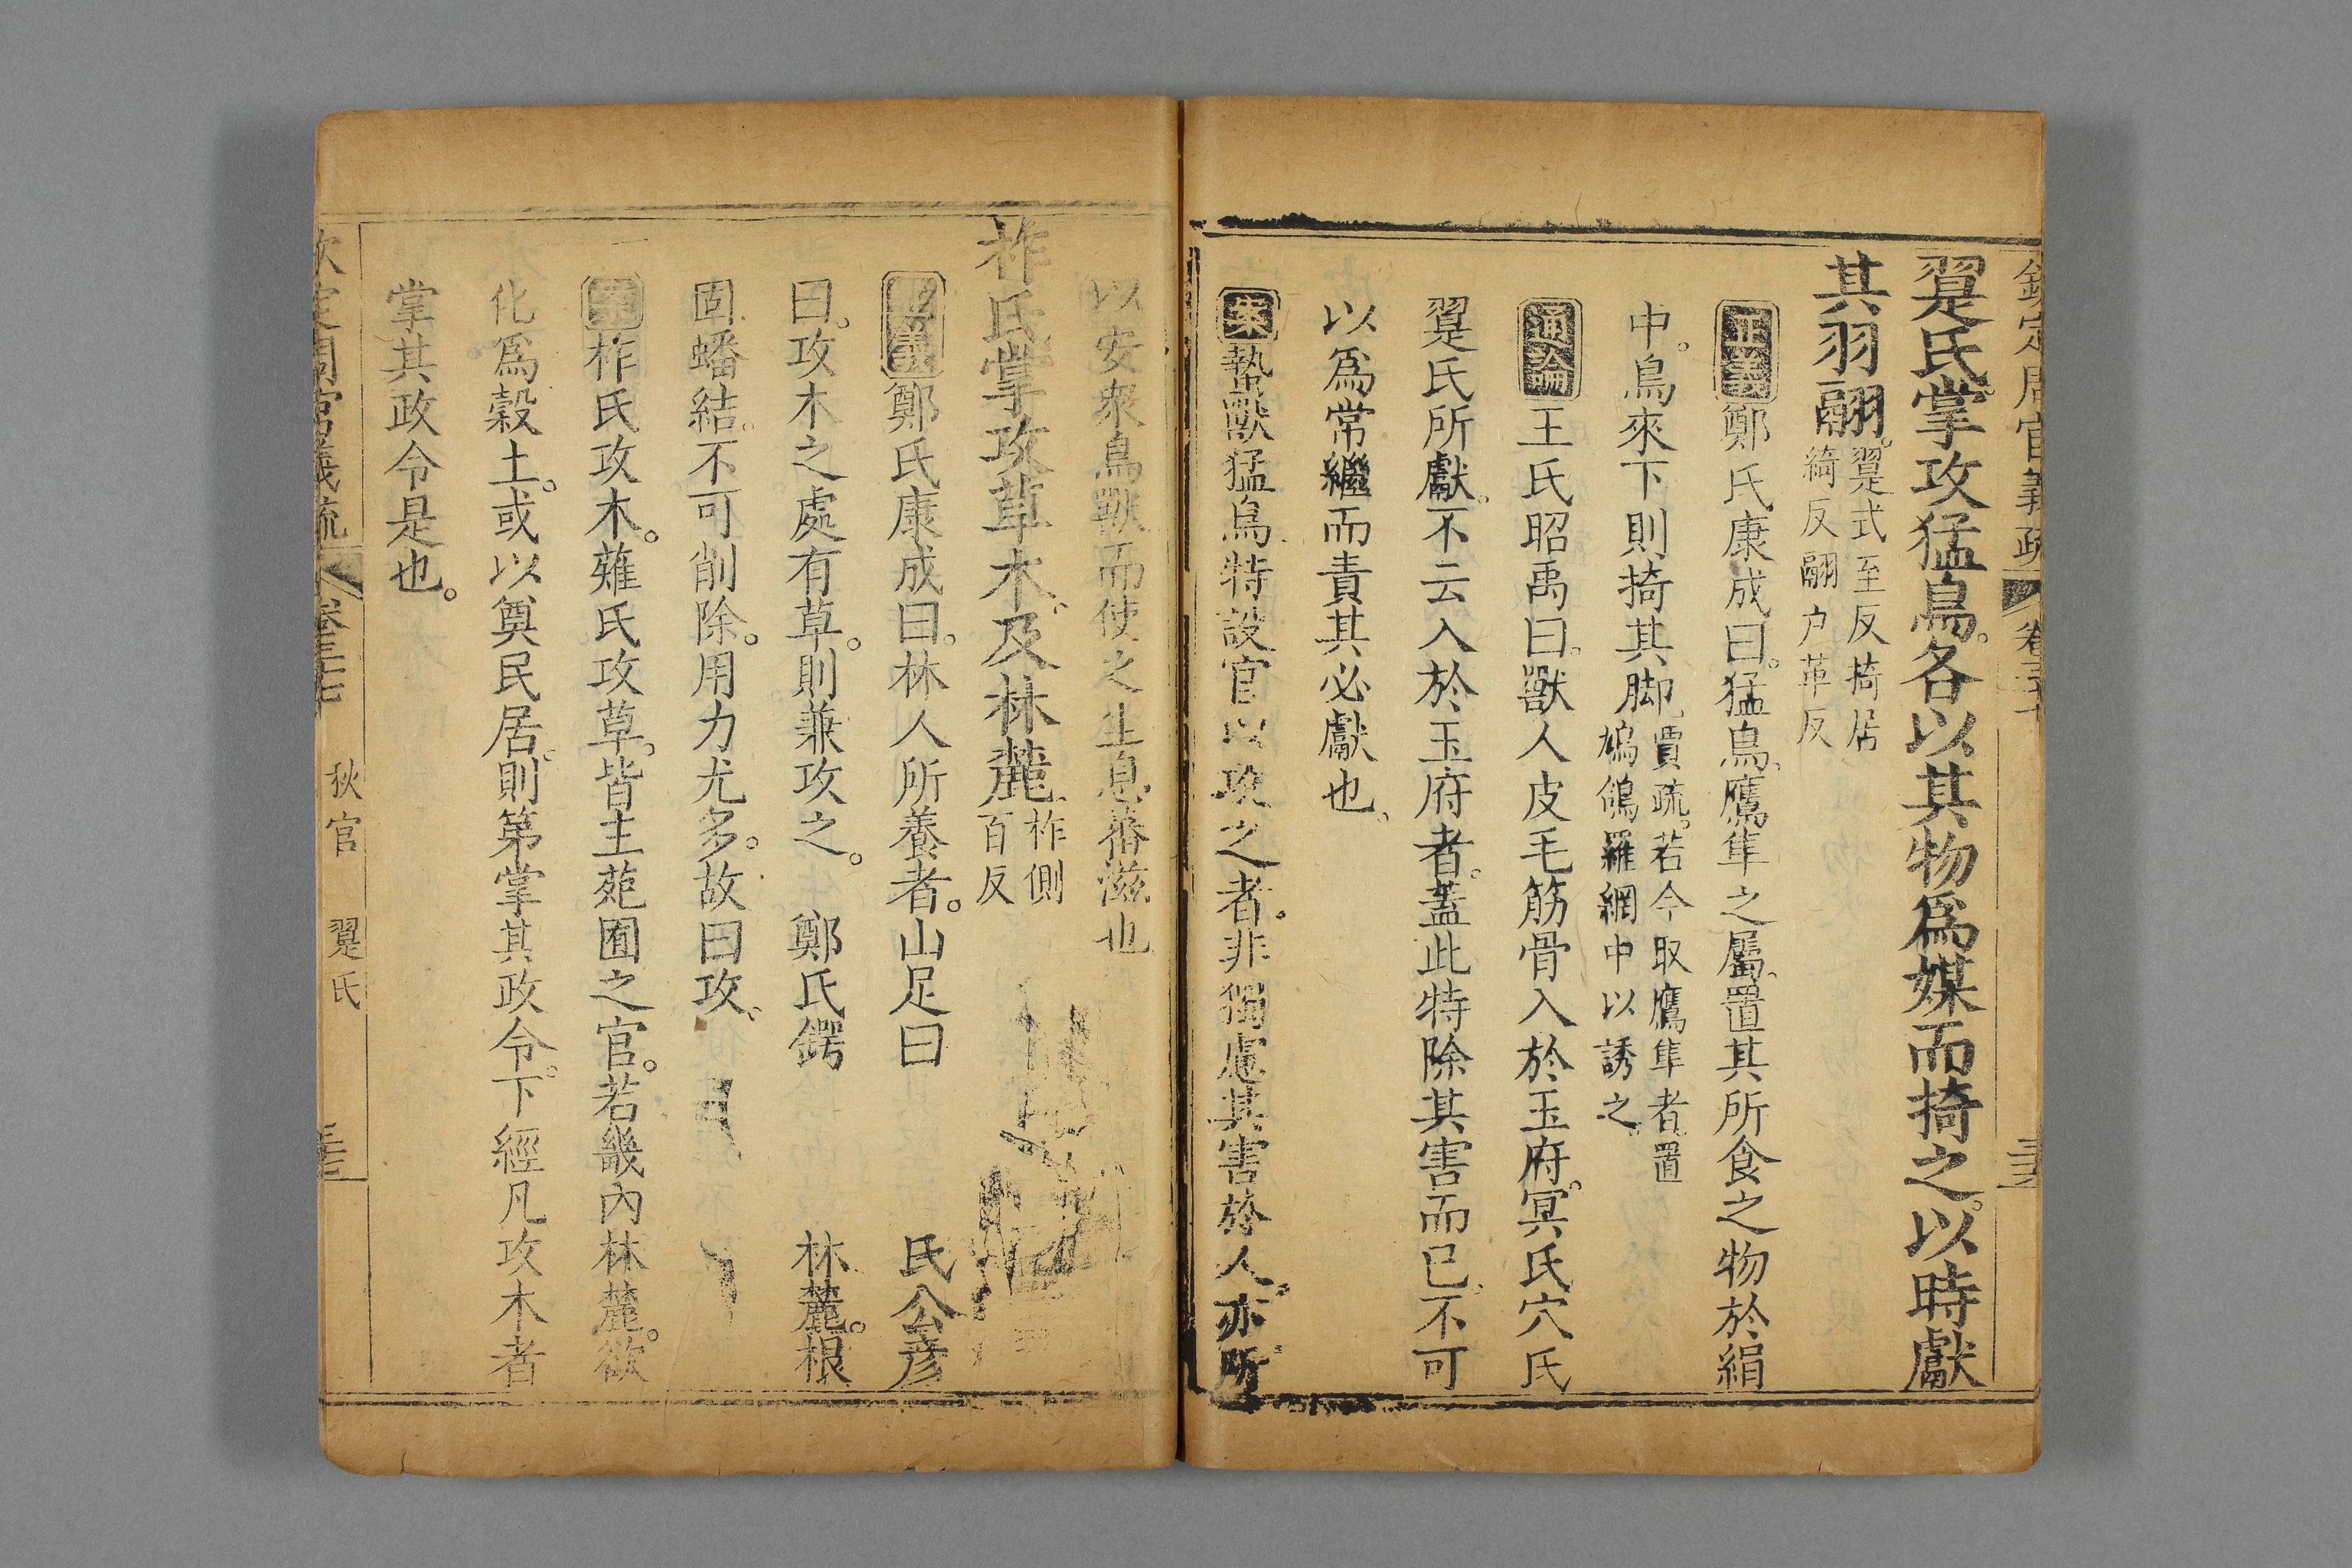 欽定周官義疏 卷三十七
翨氏掌攻猛鳥。各以其物爲媒而掎之。以時獻
其羽翮。翨式至反掎居
綺反翮户革反
正義鄭氏康成曰。猛鳥、鷹隼之屬。置其所食之物於絹
中。鳥來下則掎其脚。賈疏。若今取鷹隼者置
鳩鴿羅網中以誘之。
通論王氏昭禹曰。獸人皮毛筋骨入於玉府。冥氏穴氏
翨氏所獻。不云入於玉府者。蓋此特除其害而已。不可
以爲常繼而責其必獻也。
案蟄獸猛鳥特設官以攻之者。非獨慮其害於人。亦所
以安衆鳥獸而使之生息蕃滋也
柞氏掌攻草木。及林麓。柞側
百反
正義鄭氏康成曰。林人所養者。山足曰 氏公彥
曰。攻木之處有草。則兼攻之。 鄭氏鍔 林麓。根
固蟠結。不可削除。用力尤多。故曰攻、
案柞氏攻木。薙氏攻草。皆主苑囿之官。若畿內林麓。欲
化爲穀土。或以奠民居。則第掌其政令。下經凡攻木者
掌其政令是也。
欽定周官義疏 卷三十七 秋官 翨氏